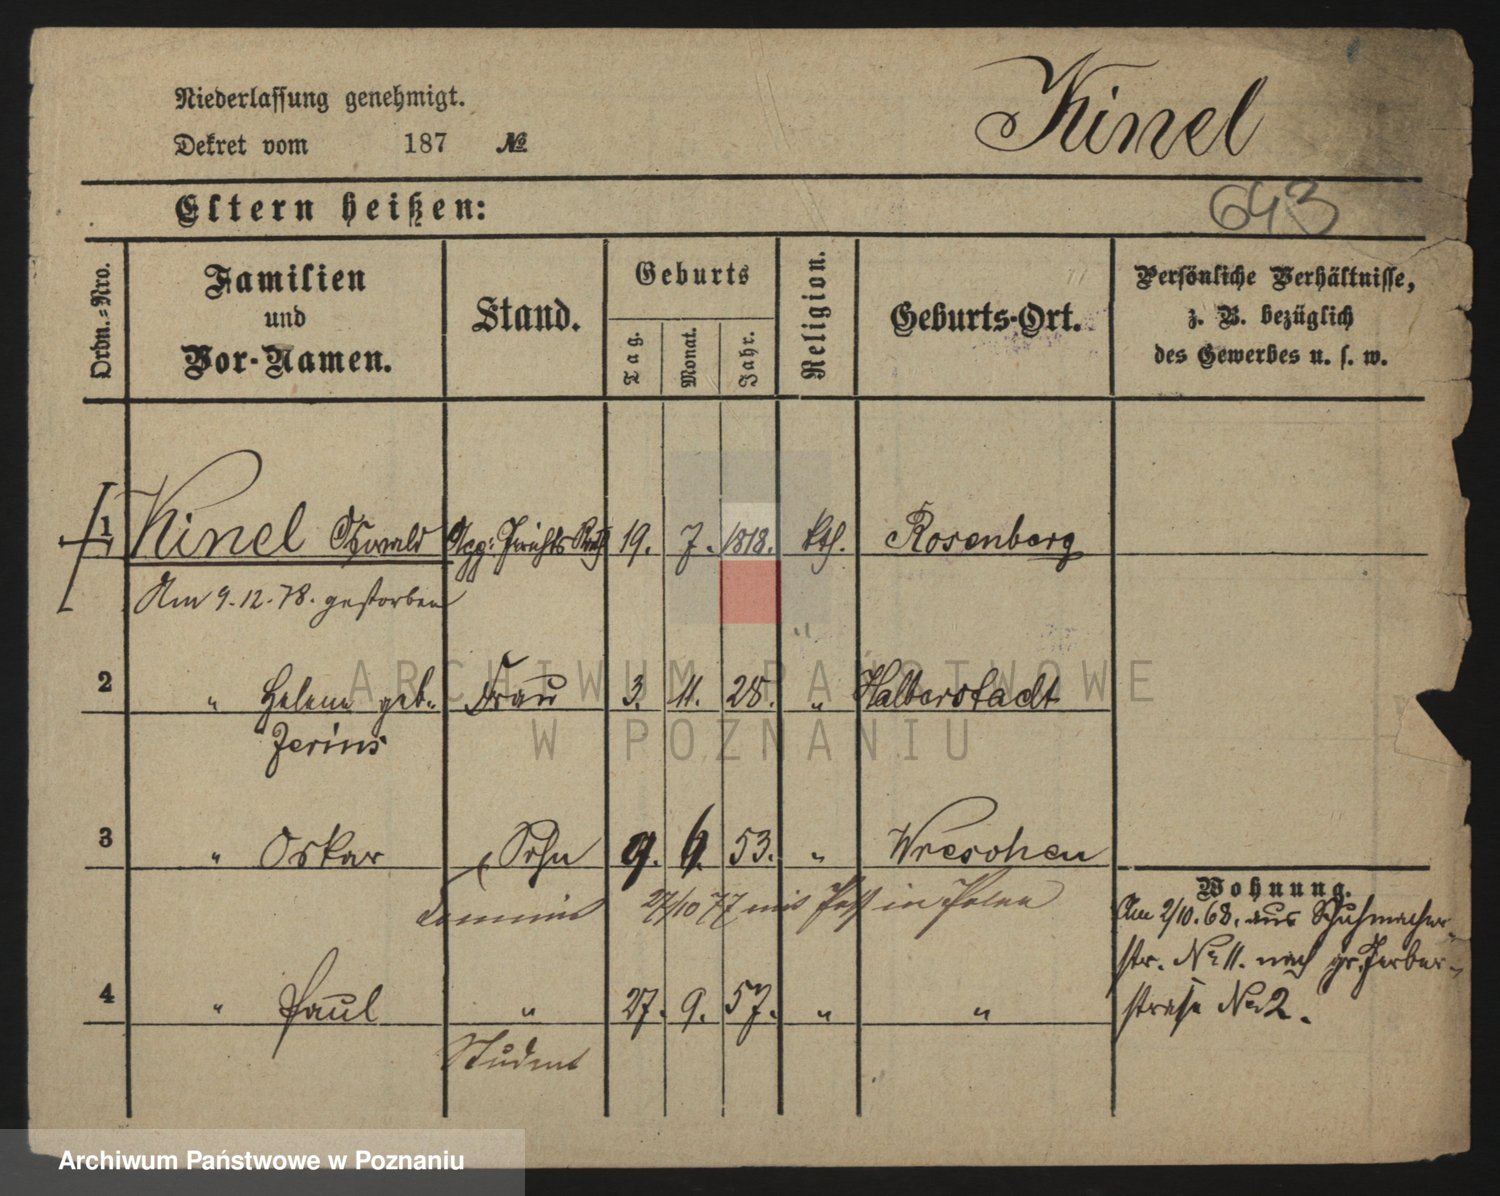 Niederlassung genehmigt.
Kinel
Dekret vom 187 №
Eltern heißen:
643
Ordn.-Nro.
Familien und Vor-Namen.
Stand.
Geburts
Tag.
Monat.
Jahr.
Religion.
Geburts-Ort.
Persönliche Verhältnisse,
z. B. bezüglich
des Gewerbes u. s. w.
1 Kinel Oswald App: Gerichts Rath 19. 7. 1818. kth. Rosenberg
Am 9.12.78. gestorben
2 " Helene geb. Frau 3. 11. 28. " Halberstadt
3 " Oskar Sohn 9. 6. 53. " Wreschen
27/10 77 mit Paß in Polen
Wohnung.
Am 2/10.68. aus Schuhmacher-
str. No 11. nach gr. Gerber-
straße No 2.
4 " Paul " 27. 9. 57. " "
Student
ARCHIWUM PAŃSTWOWE
W POZNANIU
Archiwum Państwowe w Poznaniu